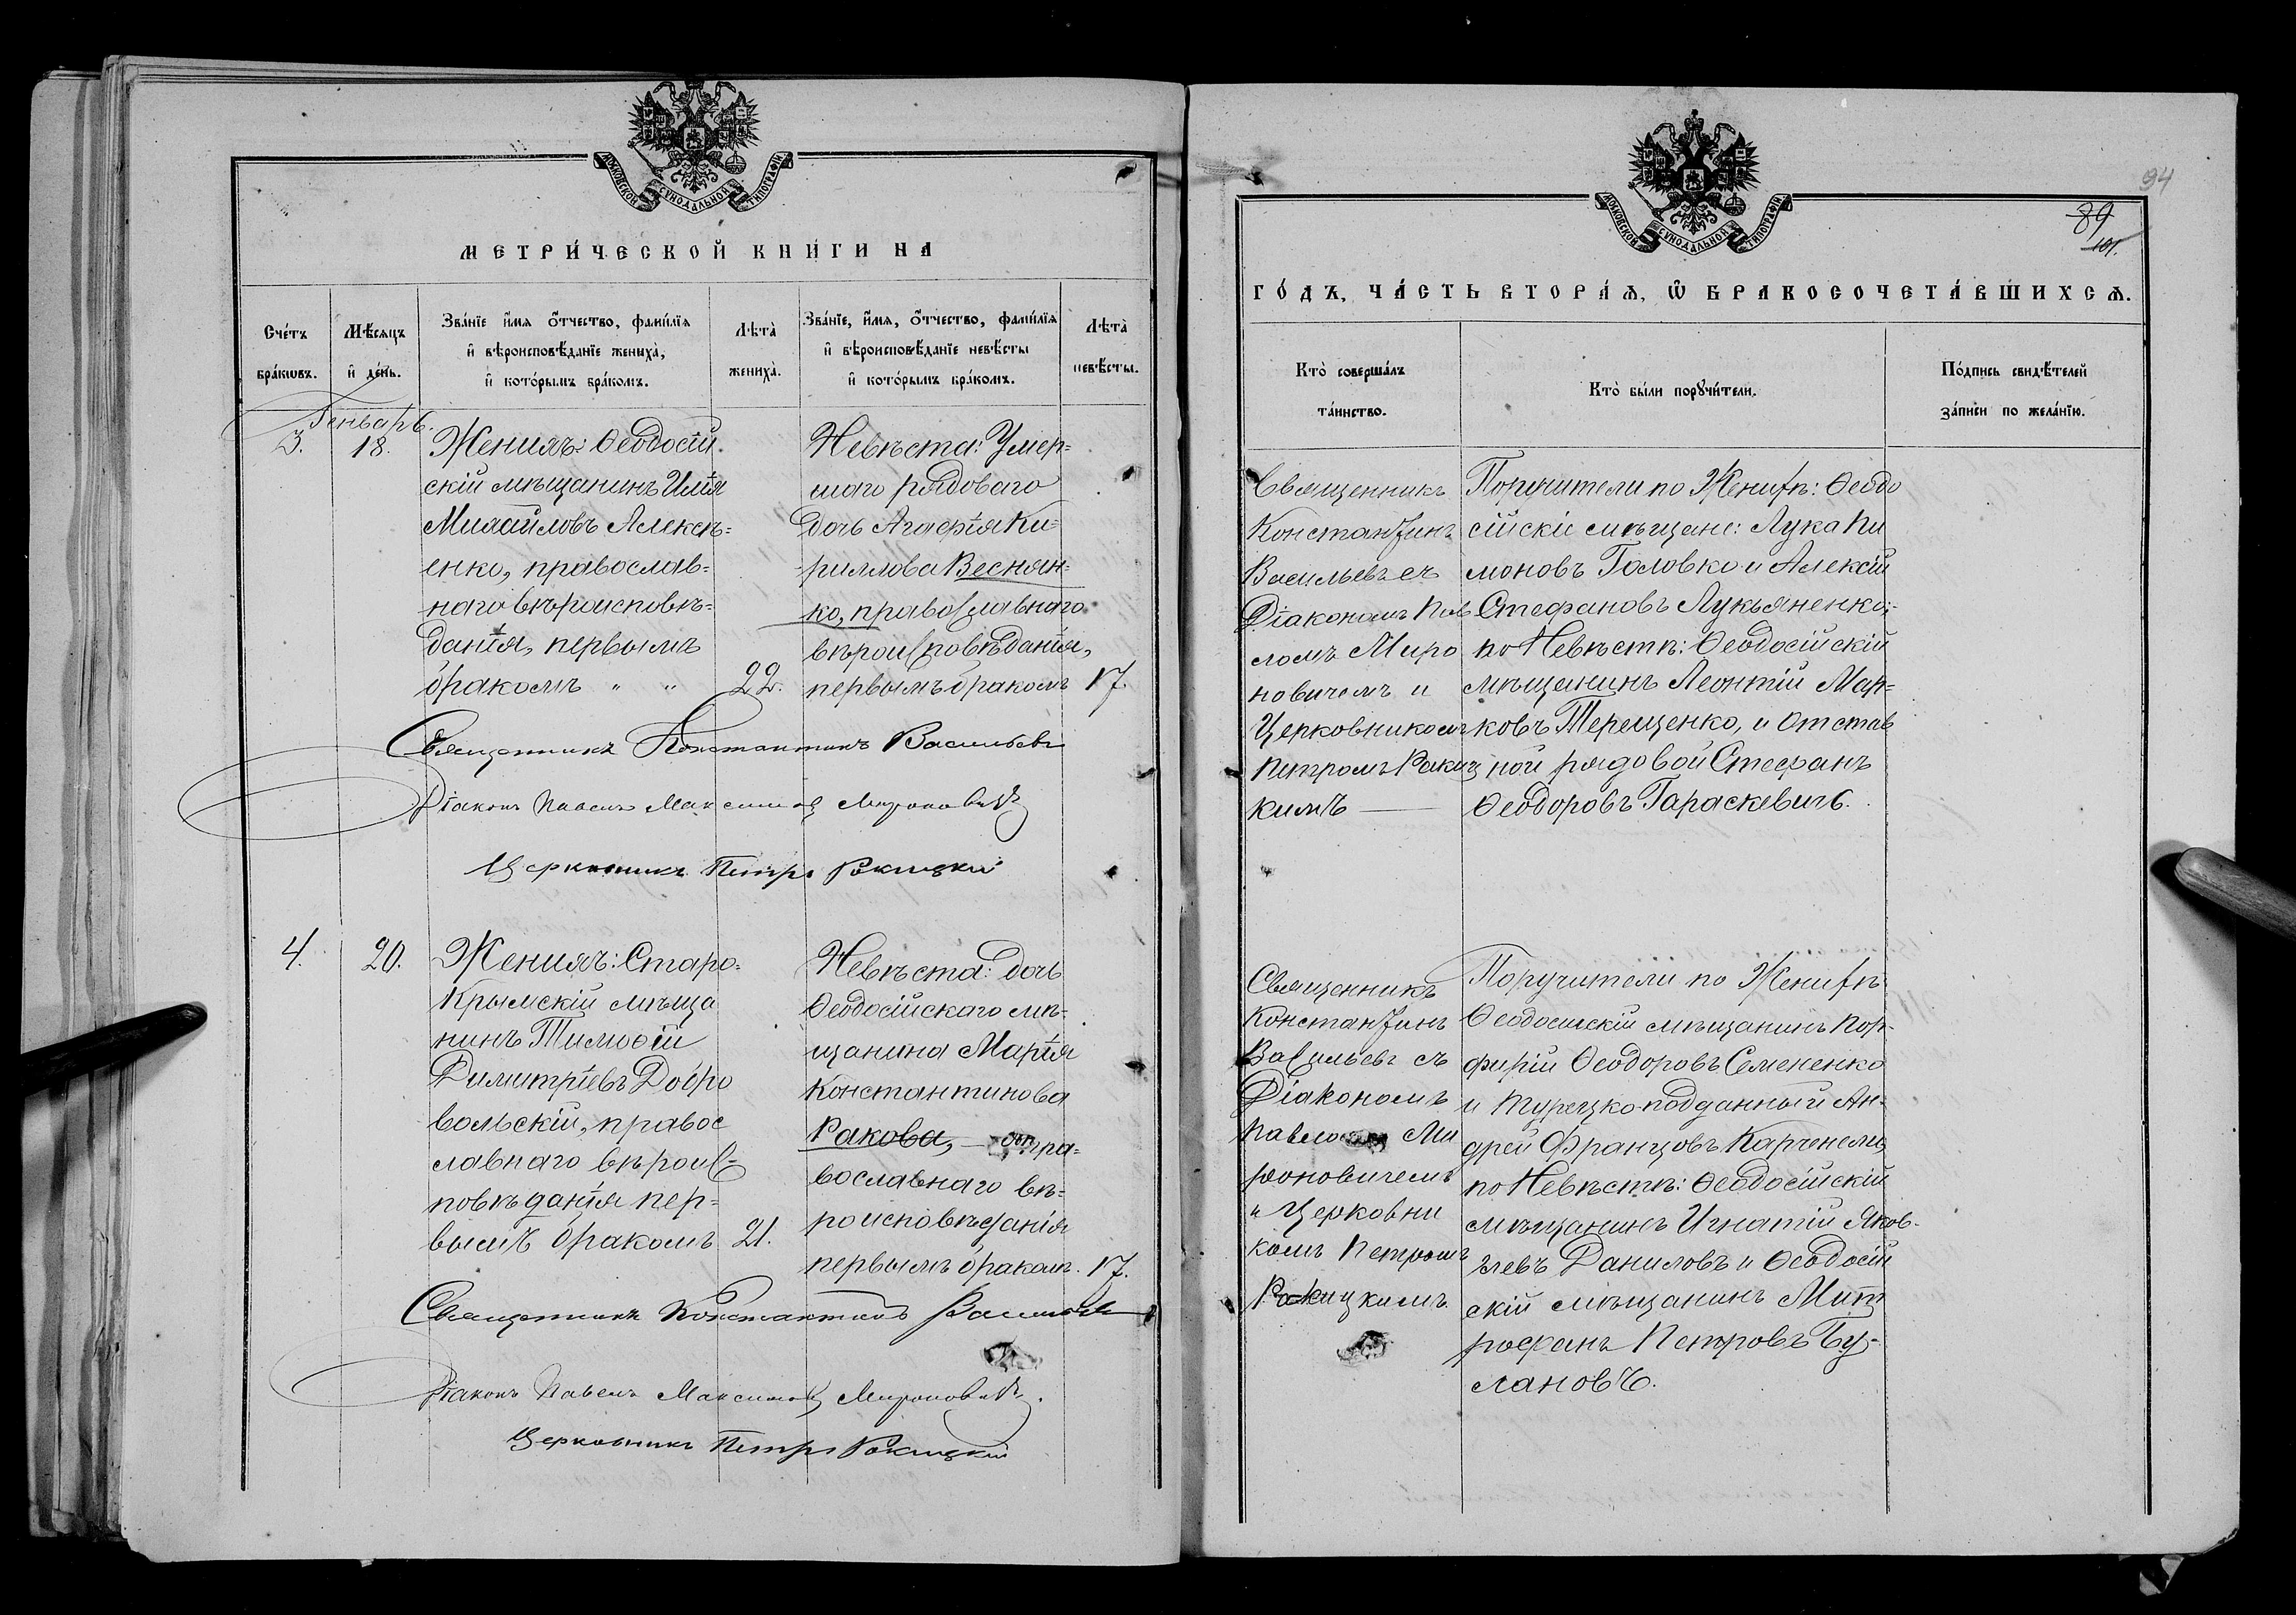 МОСКОВСКОЙ СѴНОДАЛЬНОЙ ТИПОГРАФІИ
МЕТРИ́ЧЕСКОЙ КНИ́ГИ НА
Сче́тъ бра́кѡвъ.
Мѣ́сѧцъ и҆ де́нь.
Зва́нїе и҆́мѧ ѻ҆́тчество, фами́лїѧ
и҆ вѣроисповѣ́данїе жениха̀,
и҆ кото́рымъ бра́комъ.
Лѣта̀ жениха̀.
Зва́нїе, и҆́мѧ, ѻ҆́тчество, фами́лїѧ
и҆ вѣроисповѣ́данїе невѣ́сты
и҆ кото́рымъ бра́комъ.
Лѣта̀ невѣ́сты.
Генварь.
3.
18.
Женихъ: Ѳеодосій
скій мѣщанинъ Илія
Михайловъ Алексѣ=
енко, православ=
наго вѣроисповѣ=
данія, первымъ
бракомъ " "
22.
Невѣста: Умер=
шаго рядоваго
дочь Агафія Ки=
риллова Веснян=
ко, православнаго
вѣроисповѣданія,
первымъ бракомъ
17.
Священникъ Константинъ Васильевъ
Діаконъ Павелъ Максимов Мироновичъ
Церковникъ Петръ Рокицкій
4.
20.
Женихъ: Старо=
Крымскій мѣща
нинъ Тимоѳій
Димитріевъ Добро
вольскій, правос
лавнаго вѣроис=
повѣданія пер=
вымъ бракомъ
21.
Невѣста: дочь
Ѳеодосійскаго мѣ=
щанина Марія
Константинова
Ракова, — пра=
вославнаго вѣ=
роисповѣданія
первымъ бракомъ.
17.
Священникъ Константинъ Васильевъ
Діаконъ Павелъ Максимов Мироновичъ.
Церковникъ Петръ Рокицкій
94
89
101.
МОСКОВСКОЙ СѴНОДАЛЬНОЙ ТИПОГРАФІИ
ГО́ДЪ, ЧА́СТЬ ВТОРА́Ѧ, Ѡ҆ БРАКОСОЧЕТА́ВШИХСѦ.
Кто̀ соверша́лъ
та́инство.
Кто̀ бы́ли порꙋчи́тели.
По́дпись свидѣ́телей
за́писи по жела́нїю.
Священникъ
Константинъ
Васильевъ съ
Діакономъ Пав
ломъ Миро
новичемъ и
Церковникомъ
Петромъ Рокиц
кимъ —
Поручители по Женихѣ: Ѳеодо
сійскіе мѣщане: Лука Пи
моновъ Головко и Алексій
Стефановъ Лукьяненко;-
по Невѣстѣ: Ѳеодосійскій
мѣщанинъ Леонтій Мар=
ковъ Терещенко, и Отстав
ной рядовой Стефанъ
Ѳеодоровъ Гараскевичъ.
Священникъ
Константинъ
Васильевъ съ
Діакономъ
Павломъ Ми
роновичемъ
и Церковни
комъ Петромъ
Рокицкимъ
Поручители по Женихѣ
Ѳеодосійскій мѣщанинъ Пор-
фирій Ѳеодоровъ Семененко
и Турецко-подданный Ан-
дрей Францовъ
по Невѣстѣ: Ѳеодосійскій
мѣщанинъ Игнатій Яков-
левъ Даниловъ и Ѳеодосій
скій мѣщанинъ Мит
рофанъ Петровъ Бу-
лановъ.